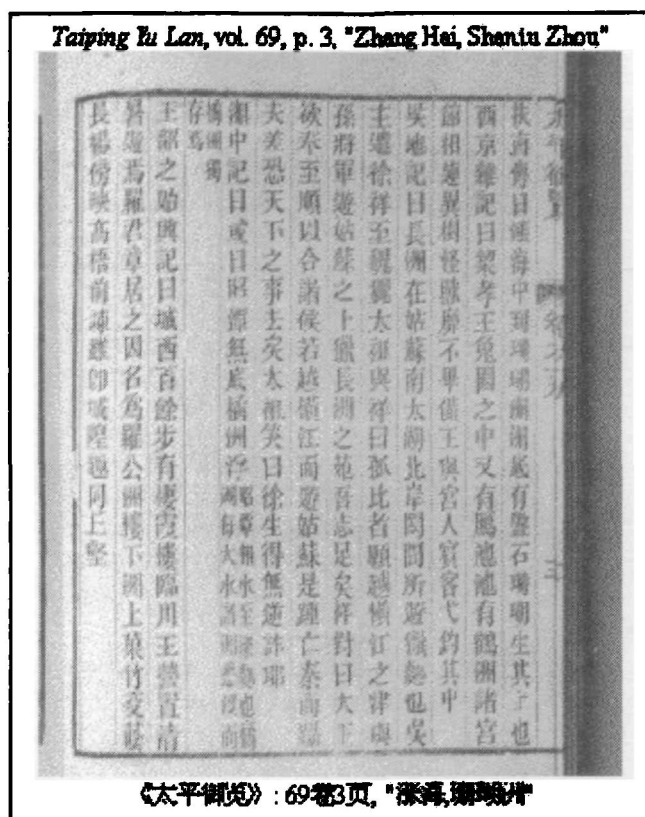 Taiping Yu Lan, vol. 69, p. 3, "Zhang Hai, Shanhu Zhou"
太平御覽 三
扶南傳曰漲海中珊瑚洲洲底有盤石珊瑚生其上也
西京雜記曰梁孝王兔園之中又有鴈池池有鶴洲諸宮
館相連異樹怪獸靡不畢備王與宮人賓客弋釣其中
吳地記曰長洲在姑蘇南太湖北岸闔閭所遊獵處也吳
主遣徐祥至魏魏太祖與祥曰孤比者願越橫江之津與
孫將軍遊姑蘇之上獵長洲之苑吾志足矣祥對曰大王
欲奉至順以合諸侯若越橫江而遊姑蘇是踵亡秦而躡
夫差恐天下之事去矣太祖笑曰徐生得無逆詐耶
湘中記曰或曰昭潭無底橘洲浮
橘洲獨
存焉
王韶之始興記曰城西百餘步有棲霞樓臨川王營置清
暑遊焉羅君章居之因名為羅公洲樓下洲上果竹交蔭
長楊傍映高梧前竦雖即城隍趣同丘壑
《太平御览》: 69卷3页, "涨海,珊瑚州"